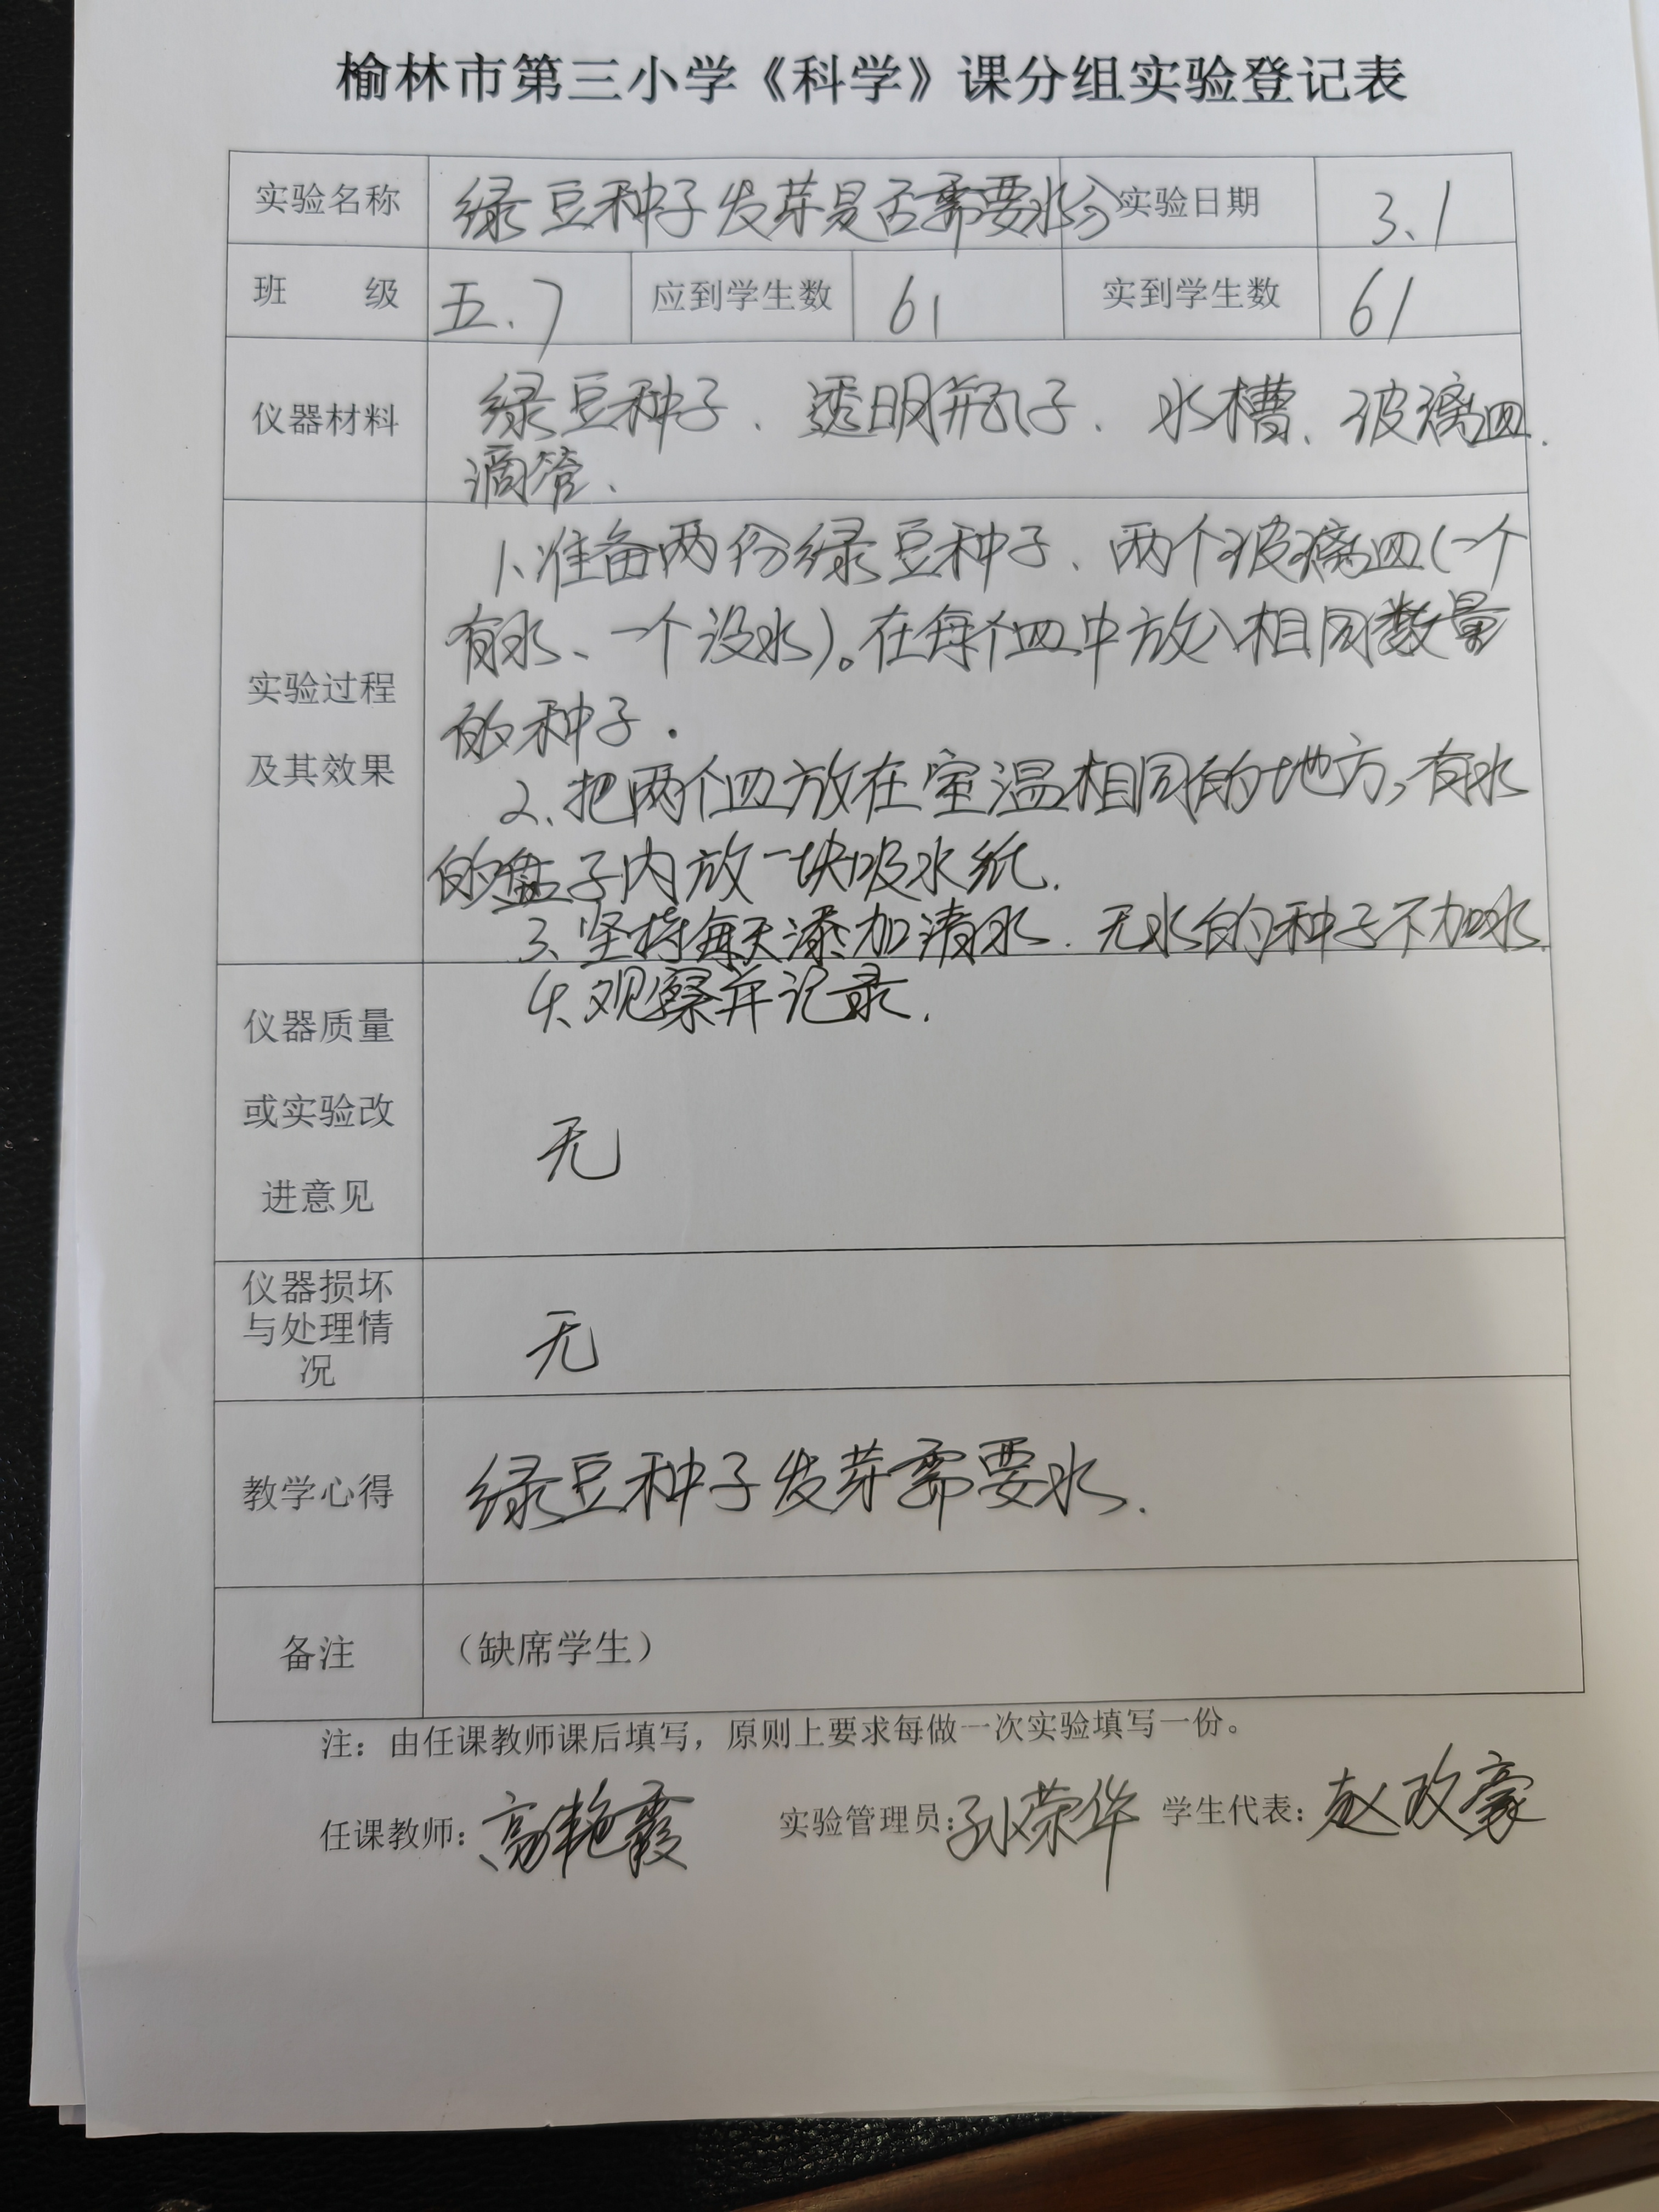 榆林市第三小学《科学》课分组实验登记表
实验名称 绿豆种子发芽是否需要水分 实验日期 3.1
班 级 五.7 应到学生数 61 实到学生数 61
仪器材料 绿豆种子、透明瓶子、水槽、玻璃皿、
滴管、
1、准备两份绿豆种子、两个玻璃皿(一个
有水、一个没水)。在每个皿中放入相同数量
实验过程
的种子.
及其效果
2、把两个皿放在室温相同的地方,有水
的盘子内放一块吸水纸.
3、坚持每天添加清水.无水的种子不加水.
4、观察并记录.
仪器质量
或实验改
无
进意见
仪器损坏
与处理情
无
况
教学心得 绿豆种子发芽需要水.
备注 (缺席学生)
注:由任课教师课后填写,原则上要求每做一次实验填写一份。
任课教师:高艳霞 实验管理员:孙荣华 学生代表:赵玫豪